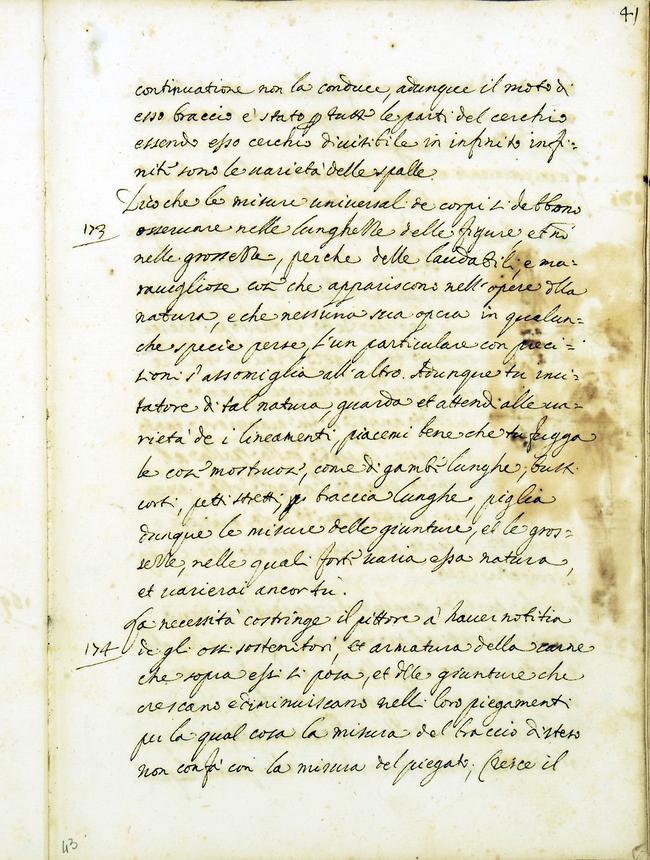 41
continuatione non la conduce, adunque il moto di
esso braccio è stato p tutte le parti del cerchio
essendo esso cerchio diuisibile in infinito infi-
nite sono le uarietà delle spalle.
Dico che le misure universal de corpi si debbono
173 osseruare nelle lunghezze delle figure, et nō
nelle grossezze, perche delle laudabili, e ma-
rauigliose cose che appariscono nell'opere dlla
natura, e che nessuna sua opera in qualun-
che specie perse, l'un particulare con preci-
sioni s'assomiglia all'altro. Adunque tu imi-
tatore di tal natura, guarda et attendi alle ua-
rietà de i lineamenti, piacemi bene che tu fugga
le cose mostruose, come di gambe lunghe, busti
corti, petti stretti, braccia lunghe, piglia
dunque le misure delle giunture, et le gros-
sezze, nelle quali forte uaria essa natura,
et uarierai ancor tù.
La necessità costringe il pittore à hauer notitia
174 de gli ossi sostenitori, et armatura della carne
che sopra essi si posa, et dlle giunture che
crescano e diminuiscano nelli loro piegamenti
per la qual cosa la misura del braccio disteso
non confà con la misura del piegato; Cresce il
43